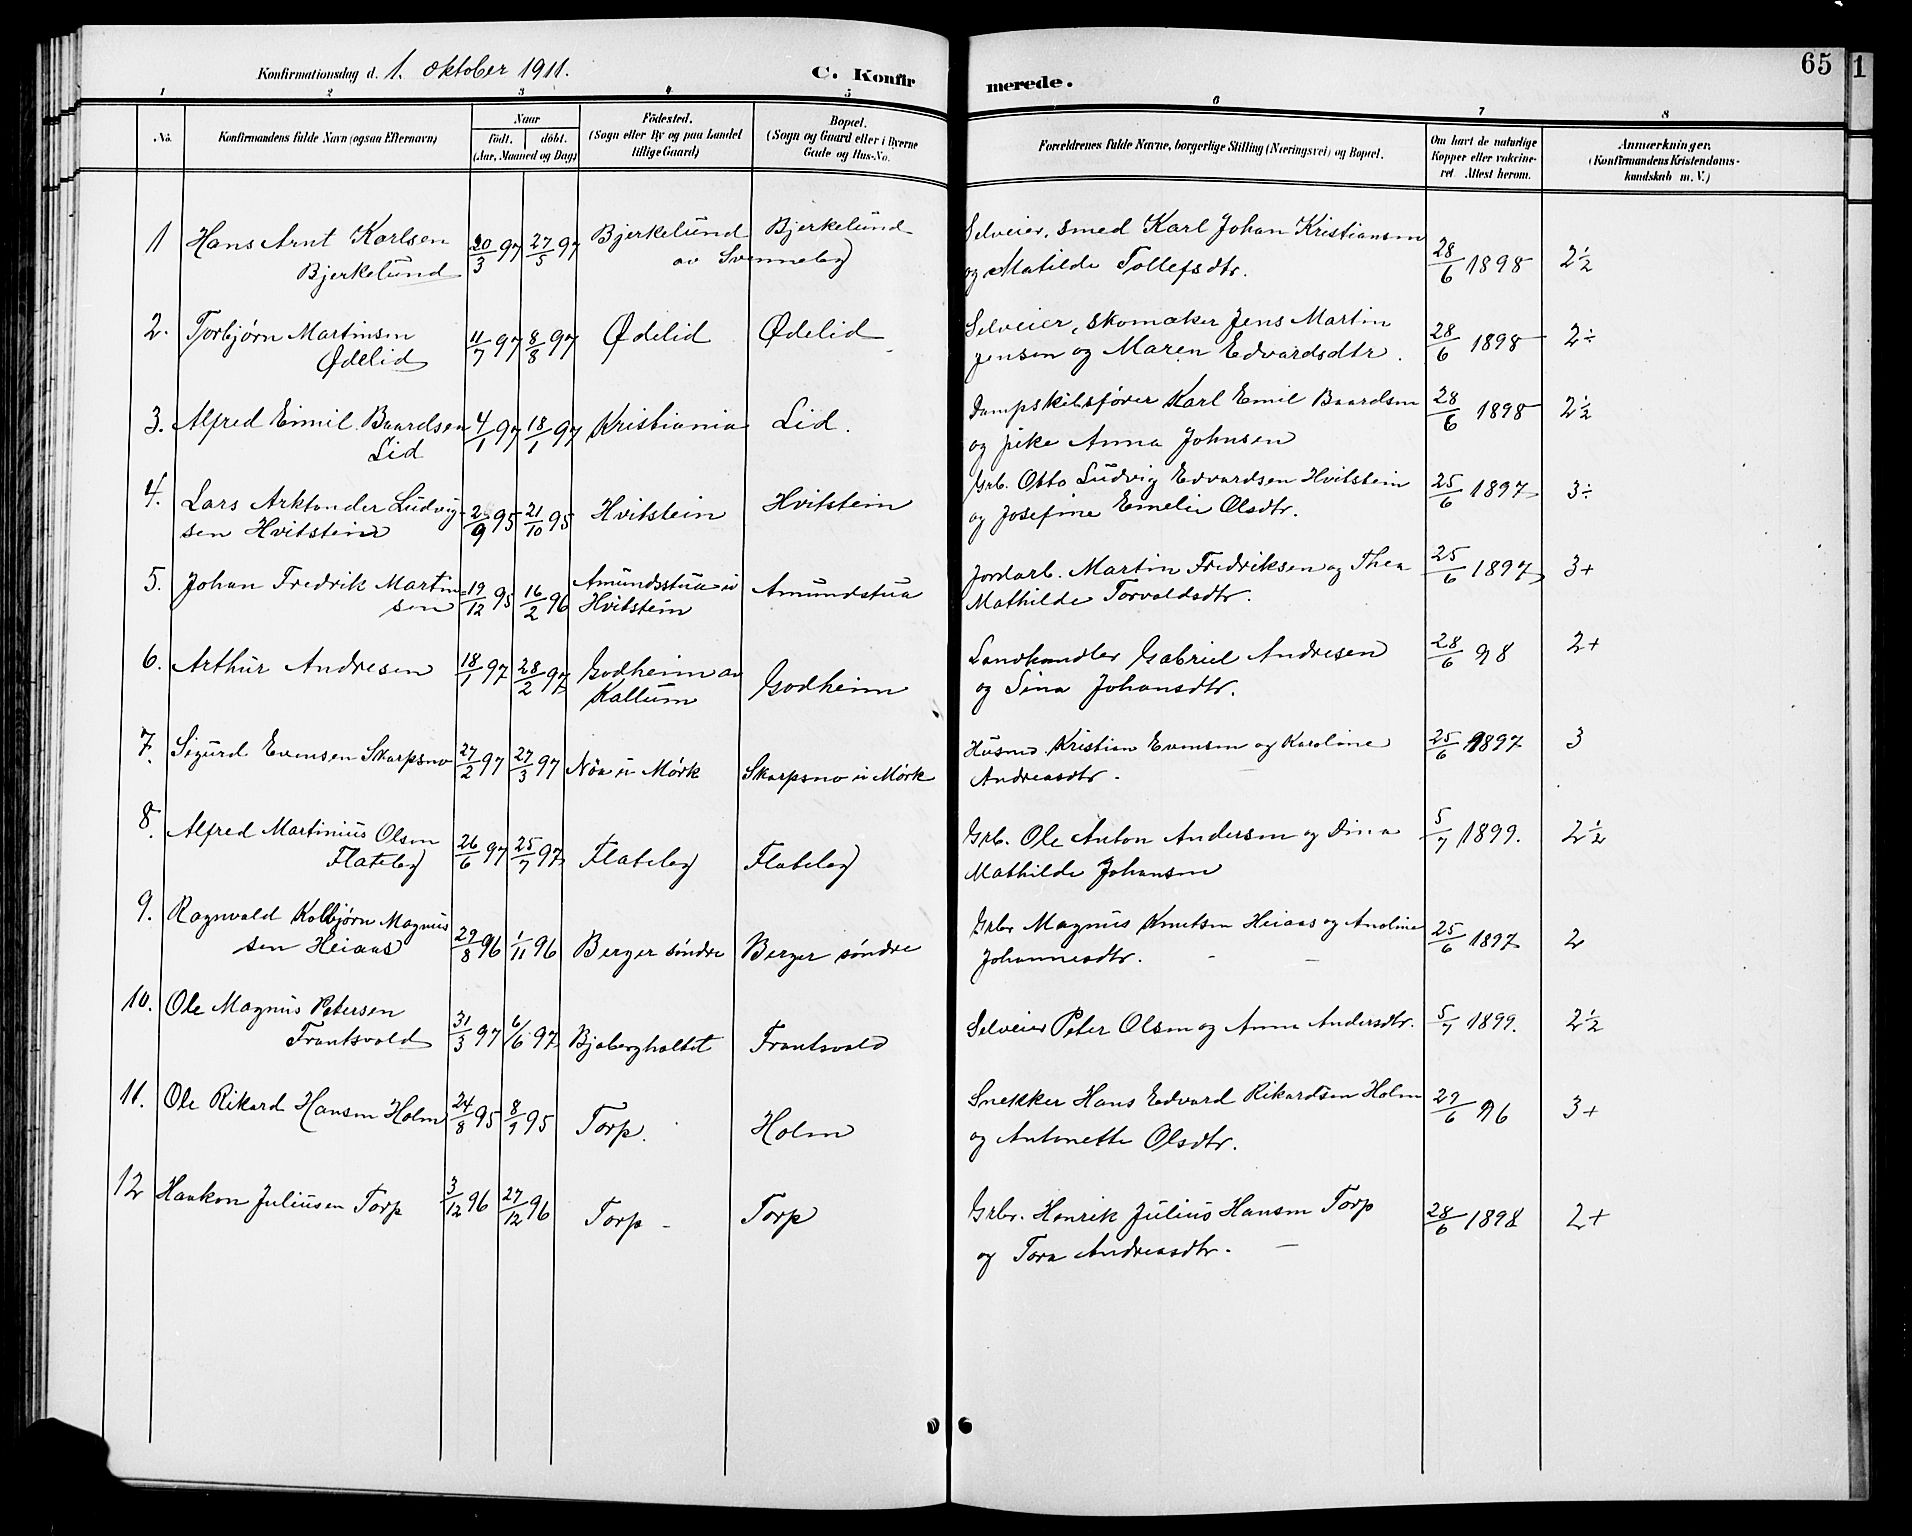 65
1
Konfirmationsdag d. 1. oktober 1911.
C. Konfir
merede.
1 2 3 4 5 6 7 8
No.
Konfirmandens fulde Navn (ogsaa Efternavn)
Naar
født. döbt.
(Aar, Maaned og Dag)
Födested.
(Sogn eller By og paa Landet
tillige Gaard)
Bopæl.
(Sogn og Gaard eller i Byerne
Gade og Hus-No.
Forældrenes fulde Navne, borgerlige Stilling (Næringsvei) og Bopæl.
Om havt de naturlige
Kopper eller vakcine-
ret Attest herom.
Anmærkninger.
(Konfirmandens Kristendoms-
kundskab m. V.)
1 Hans Arnt Karlsen 20/3 97 27/5 97 Bjerkelund Bjerkelund Selveier, smed Karl Johan Kristiansen 28/6 1898 2½
Bjerkelund av Svenneby og Matilde Tollefsdtr.
2. Torbjørn Martinsen 11/7 97 8/8 97 Ødelid Ødelid Selveier, skomaker Jens Martin 28/6 1898 2÷
Ødelid Jensen og Maren Edvardsdtr.
3. Alfred Emil Baardsen 4/1 97 18/1 97 Kristiania Lid. Dampskibsfører Karl Emil Baardsen 28/6 1898 2½
Lid og pike Anna Johnsen
4. Lars Arktander Ludvig- 2/9 95 21/10 95 Hvitstein Hvitstein Grb. Otto Ludvig Edvardsen Hvitstein 25/6 1897 3÷
sen Hvitstein og Josefine Emelie Olsdtr.
5. Johan Fredrik Martin 19/12 95 16/2 96 Amundsstua i Amundstua Jordarb. Martin Fredriksen og Thea 25/6 1897 3+
sen Hvitstein Mathilde Torvaldsdtr.
6. Arthur Andresen 18/1 97 28/2 97 Godheim av Godheim Landhandler Gabriel Andresen 28/6 98 2+
Kallum og Sina Johansdtr.
7. Sigurd Evensen Skarpsno 27/2 97 27/3 97 Nöa i Mørk Skarpsno i Mørk Husmd. Kristian Evensen og Karoline 25/6 1897 3
Andreasdtr.
8. Alfred Martinius Olsen 26/6 97 25/7 97 Flateby Flateby Grb. Ole Anton Andersen og Dina 5/7 1899. 2½
Flateby Mathilde Johansen
9. Ragnvald Kolbjørn Magnus 29/8 96 1/11 96 Berger söndre Berger søndre Grbr Magnus Knutsen Heiaas og Anoline 25/6 1897 2
sen Heiaas Johannesdtr.
10. Ole Magnus Petersen 31/3 97 6/6 97 Bjabergholtet Frantsvold Selveier Peter Olsen og Anna Andersdtr. 5/7 1899. 2½
Frantsvold
11. Ole Rikard Hansen Holm 24/8 95 8/9 95 Torp. Holm Snekker Hans Edvard Rikardsen Holm 29/6 96 3+
og Antonette Olsdtr.
12 Haakon Juliusen Torp 3/12 96 27/12 96 Torp - Torp Grbr. Henrik Julius Hansen Torp 28/6 1898 2+
og Tora Andreasdtr. -